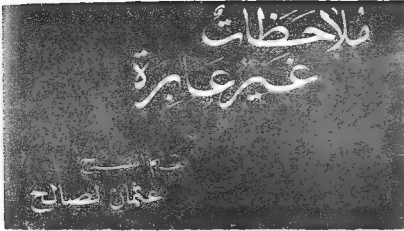 مُلاحَظَاتٌ
غَيْر عَابِرَة
عثمان الصالح